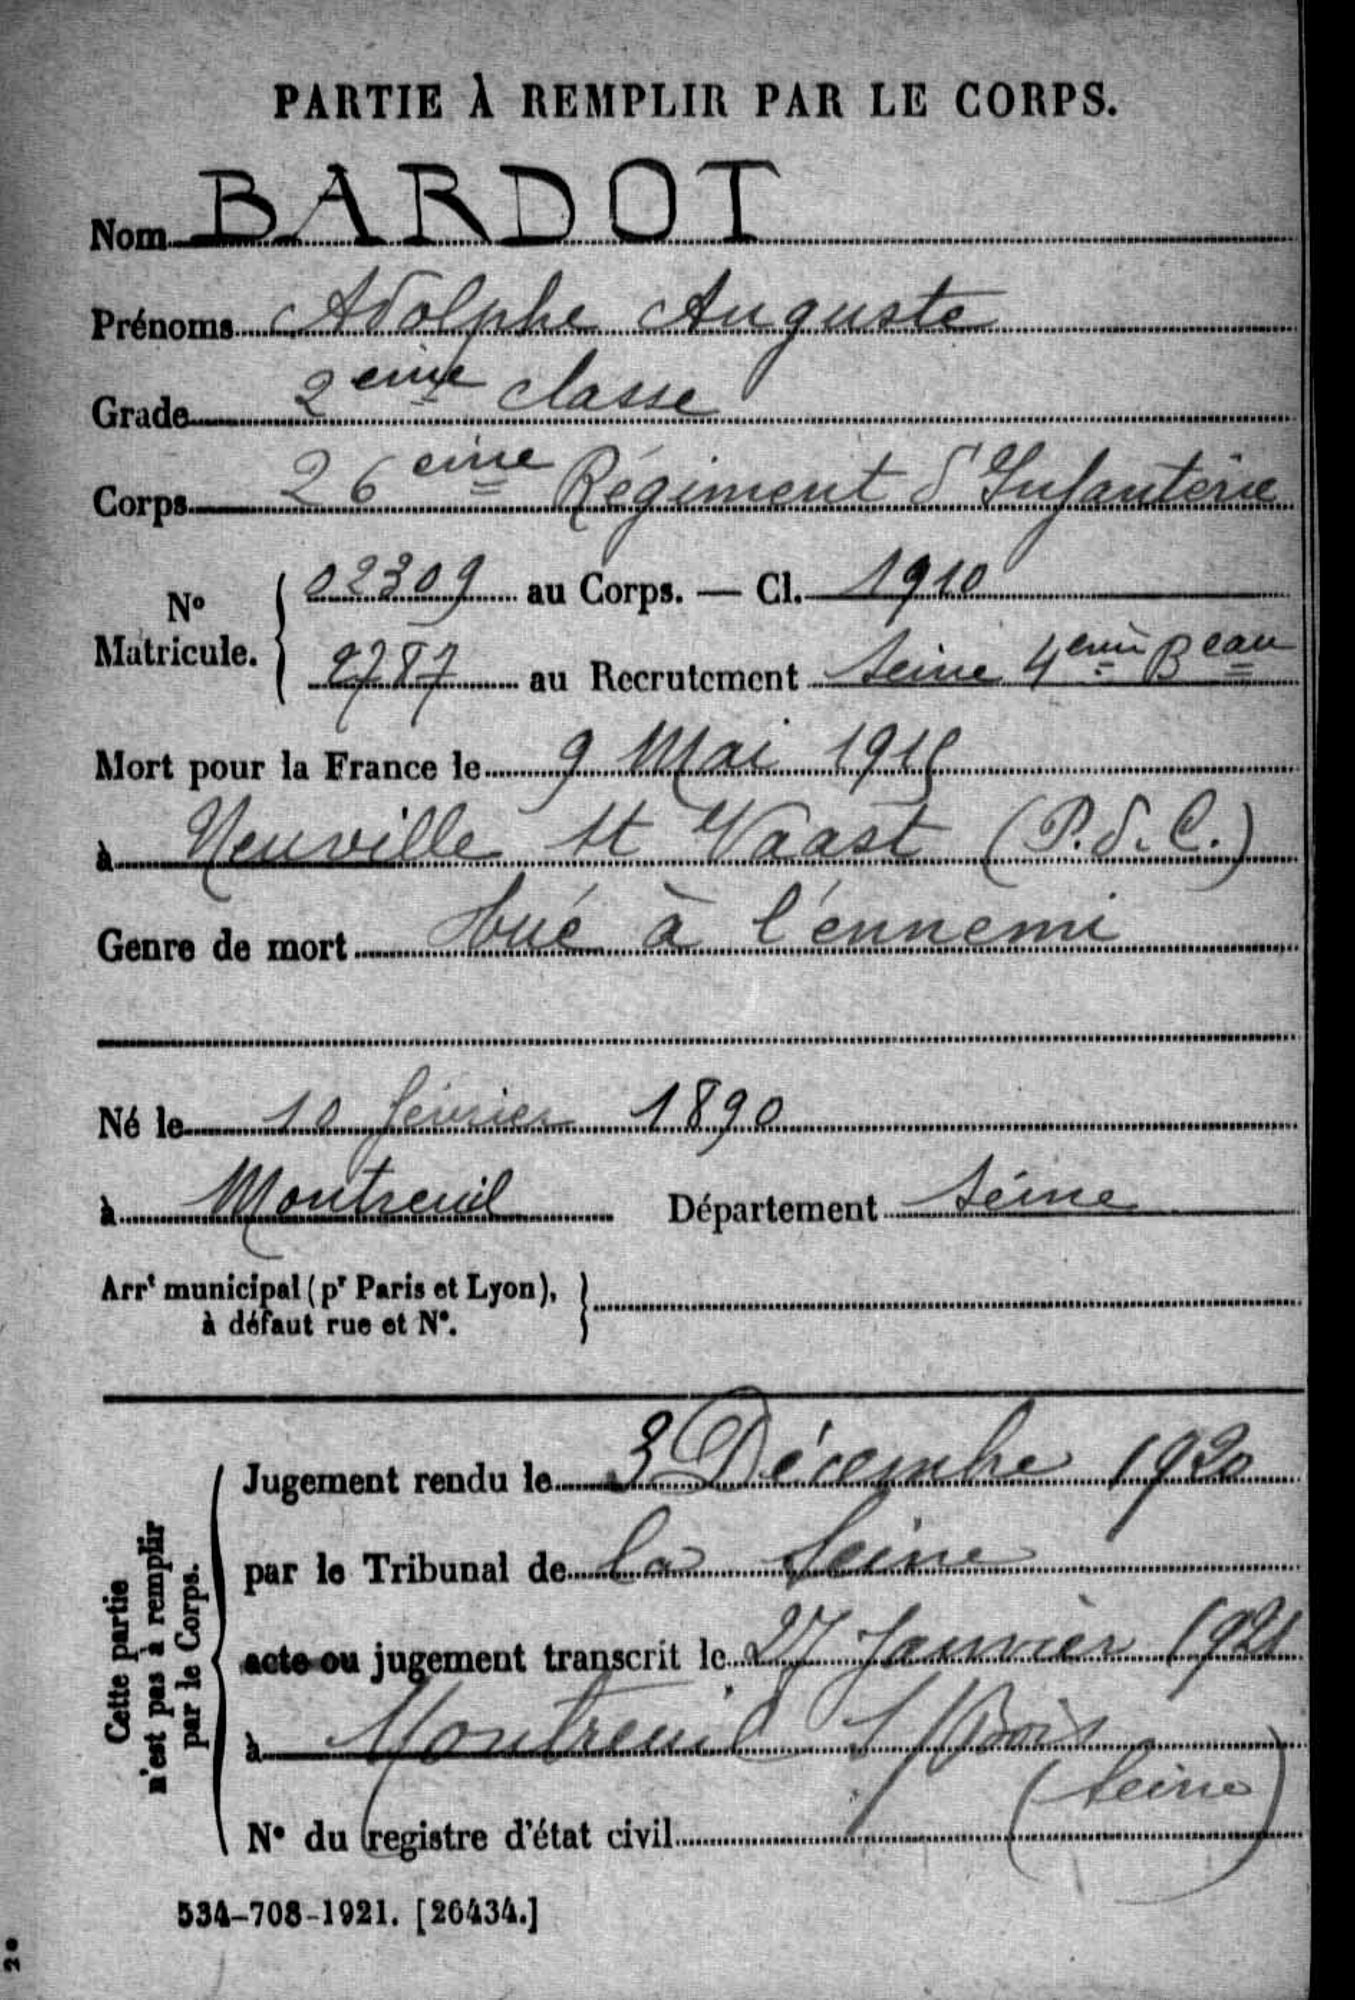 PARTIE À REMPLIR PAR LE CORPS.
Nom BARDOT
Prénoms Adolphe Auguste
Grade 2eme classe
Corps 26eme Régiment d'Infanterie
No Matricule. 02309 au Corps. — Cl. 1910
2787 au Recrutement Seine 4eme Beau
Mort pour la France le 9 Mai 1915
à Neuville St Vaast (P.d.C.)
Genre de mort tué à l'ennemi
Né le 10 février 1890
à Montreuil Département Seine
Arrt municipal (pr Paris et Lyon),
à défaut rue et No.
Cette partie
n'est pas à remplir
par le Corps.
Jugement rendu le 3 Décembre 1920
par le Tribunal de la Seine
acte ou jugement transcrit le 27 Janvier 1921
à Montreuil s/Bois
(Seine)
No du registre d'état civil
534-708-1921. [26434.]